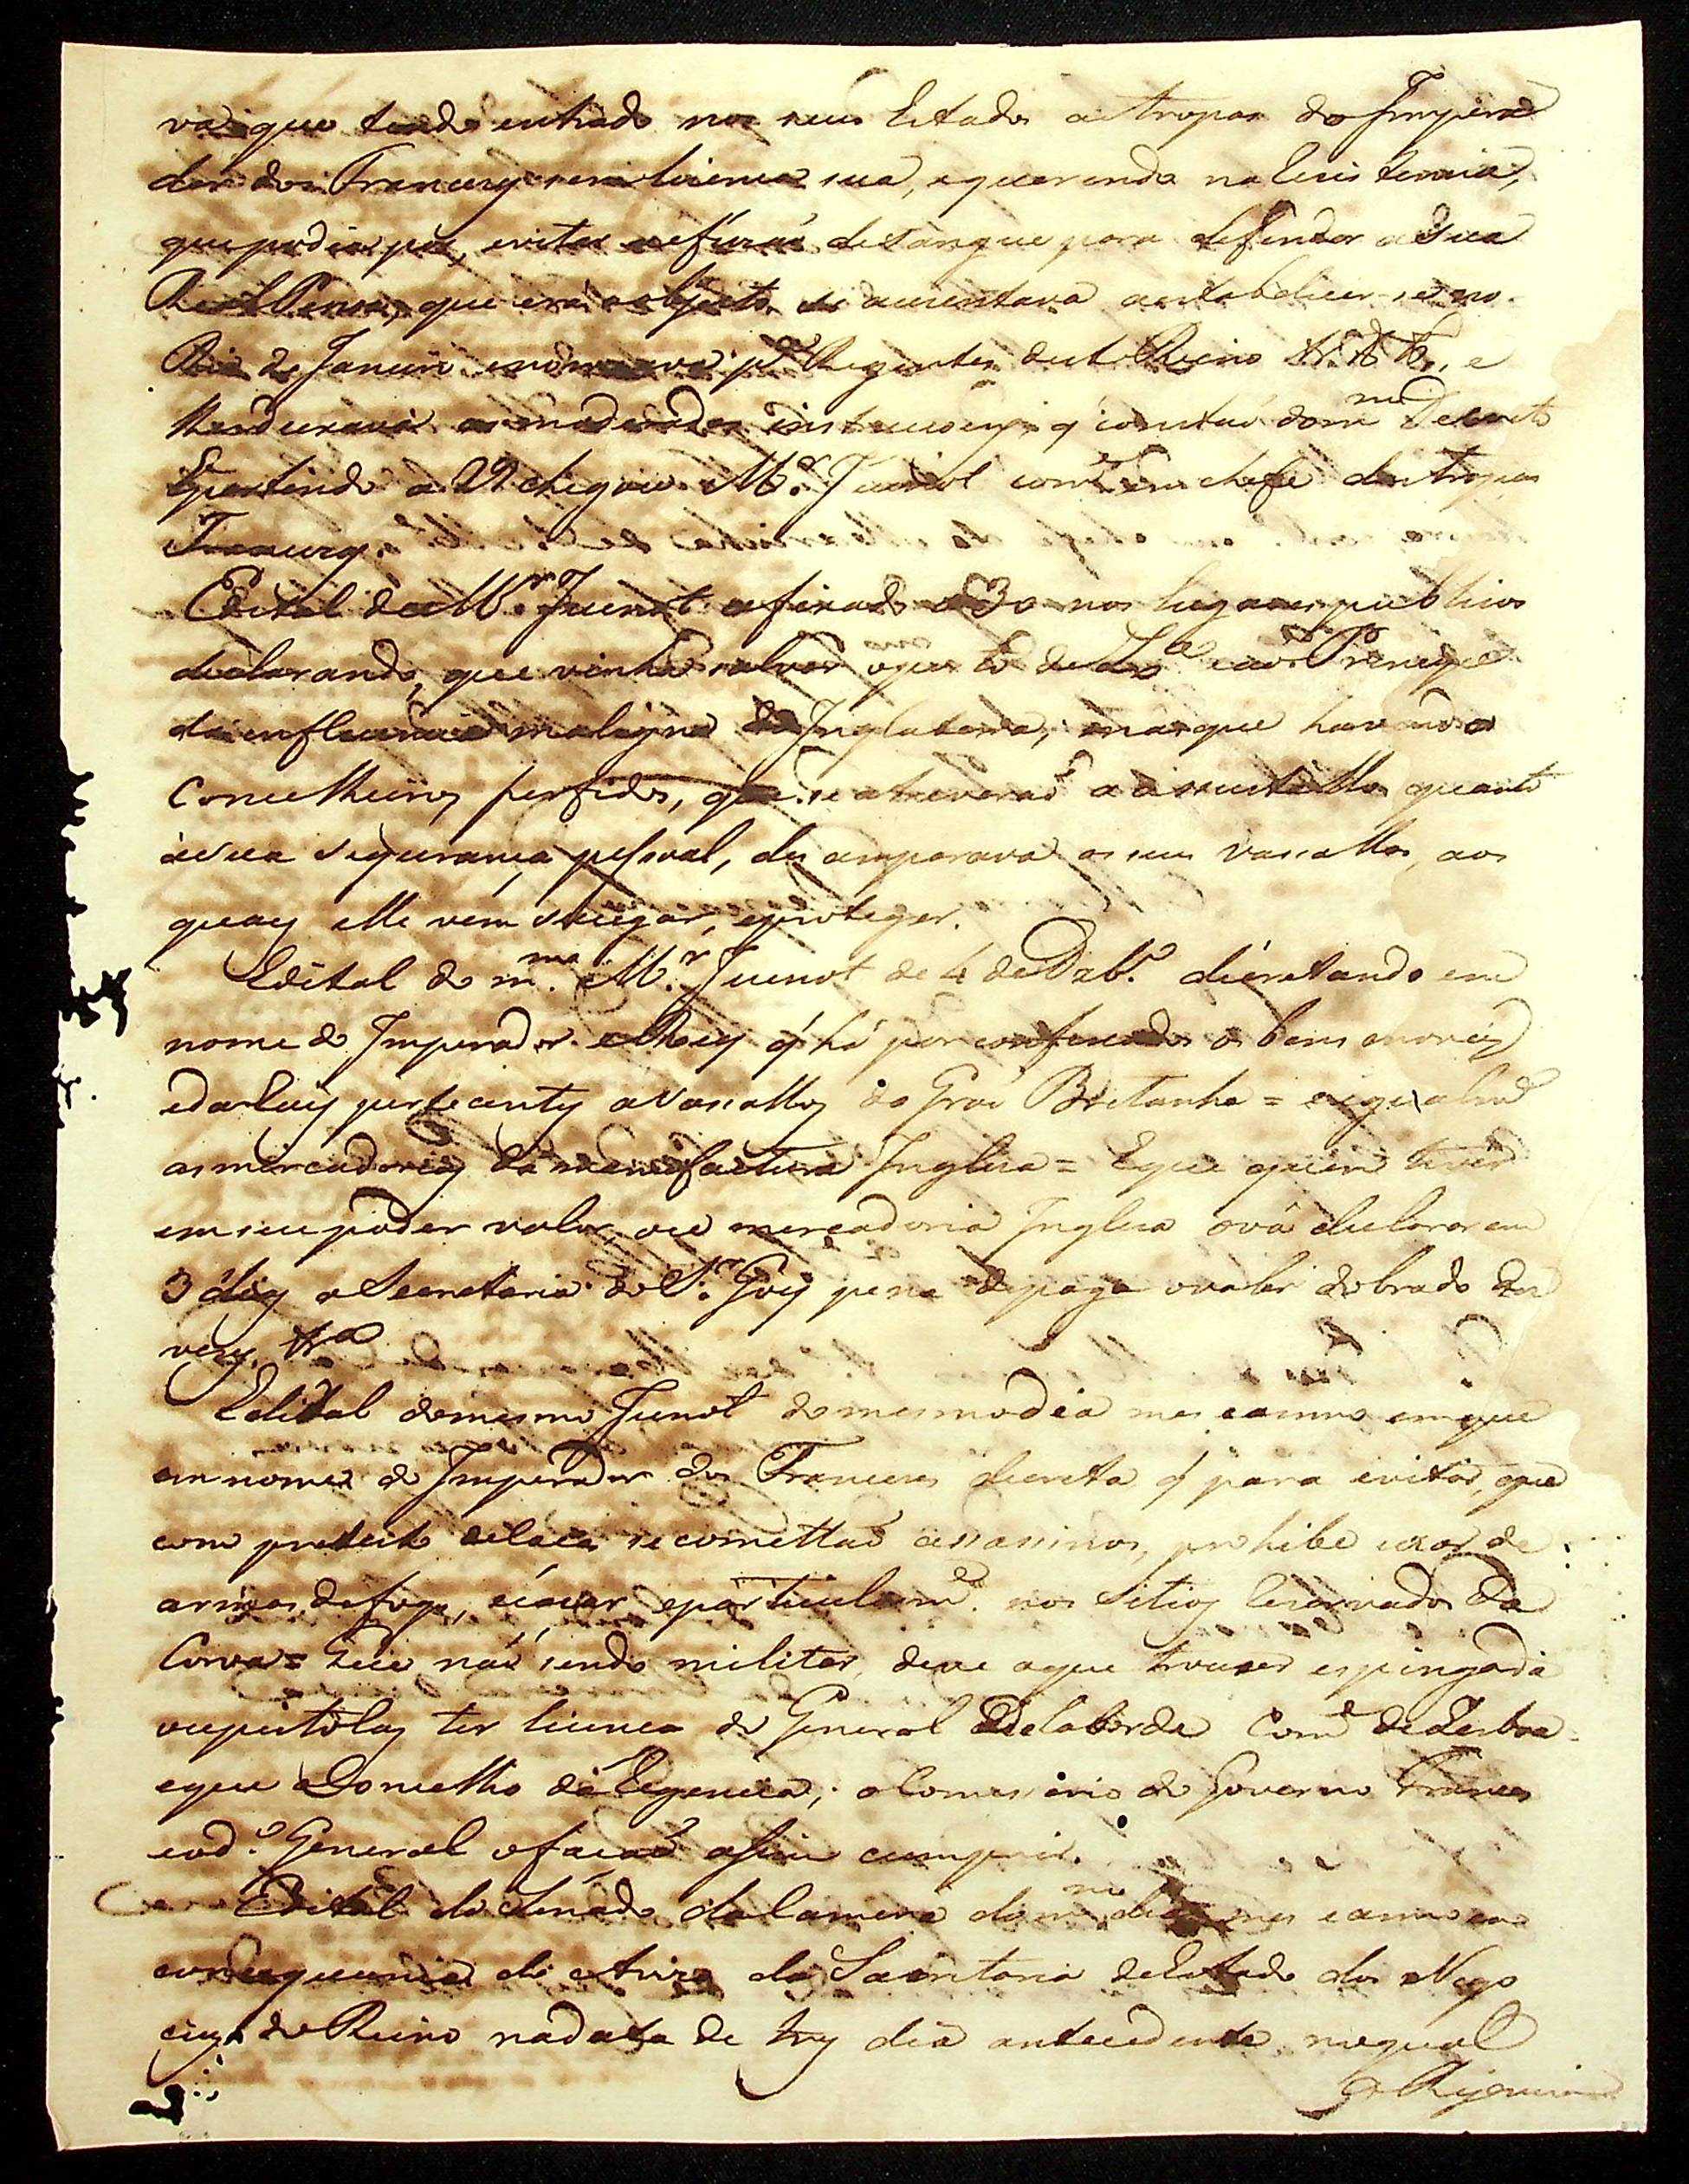 va que tendo entrado nos seus Estados as tropas do Impera
dor dos Francezes sem licença sua, e querendo na
que podia evitar efuzaõ de sangue para defender a Sua
Real Pessoa, que era o objecto, se auzentava a estabelecer-se no
Rio de Janeiro e nomeava p.ª Regentes deste Reino &. &. &., e
as instrucçoens q̃ do m.mo Decreto
E partindo a 29 chegou M.r Junot com.e em chefe das tropas
Francezas.
Edital de M.r Junot afixado a 30 nos lugares publicos
declarando, que vinha salvar o porto de Lx.ª e ao Principe
da influencia maligna da Inglaterra; mas que havendo
Conselheiros perfidos, que se atreveraõ a assustallo quanto
á sua segurança pessoal, desamparava os seus vassallos, aos
quaes elle vem socegar, e proteger.
Edital do m.mo M.r Junot de 4 de Dzb.º decretando em
nome do Imperador e Rey q̃ há por confiscados os bens moveis
e da Leis pertecentes a Vassallos da Graõ Bretanha = e igualm.e
as mercadorias da manufactura Ingleza = E que quem tiver
em seu poder valor, ou mercadoria Ingleza o vá declarar em
3 dias a Secretaria do S.r Goy pena de paga o valor dobrado dez
vezes. &.ª
Edital do mesmo Junot do mesmo dia mes e anno em que
em nome do Imperador dos Francezes decreta q̃ para evitar, que
com pretexto de caça se comettaõ assassinos, prohibe uzar de
armas de fogo, e caçar, e particularm.e nos Sitios reservados da
Coroa = Que naõ sendo militar, deve o que trouxer espingarda
ou pistolas ter licença do General Delaborde Com.e de Lisboa
e que o Conselho de Regencia, o Comessario do Governo Frances
e o d.º General o façaõ assim cumprir.
Edital do Senado da Camera do m.mo dia mes e anno em
consequencia do Avizo da Secretaria de Estado dos Nego
cios do Reino na data de hoy dia antecedente no qual
a Regencia